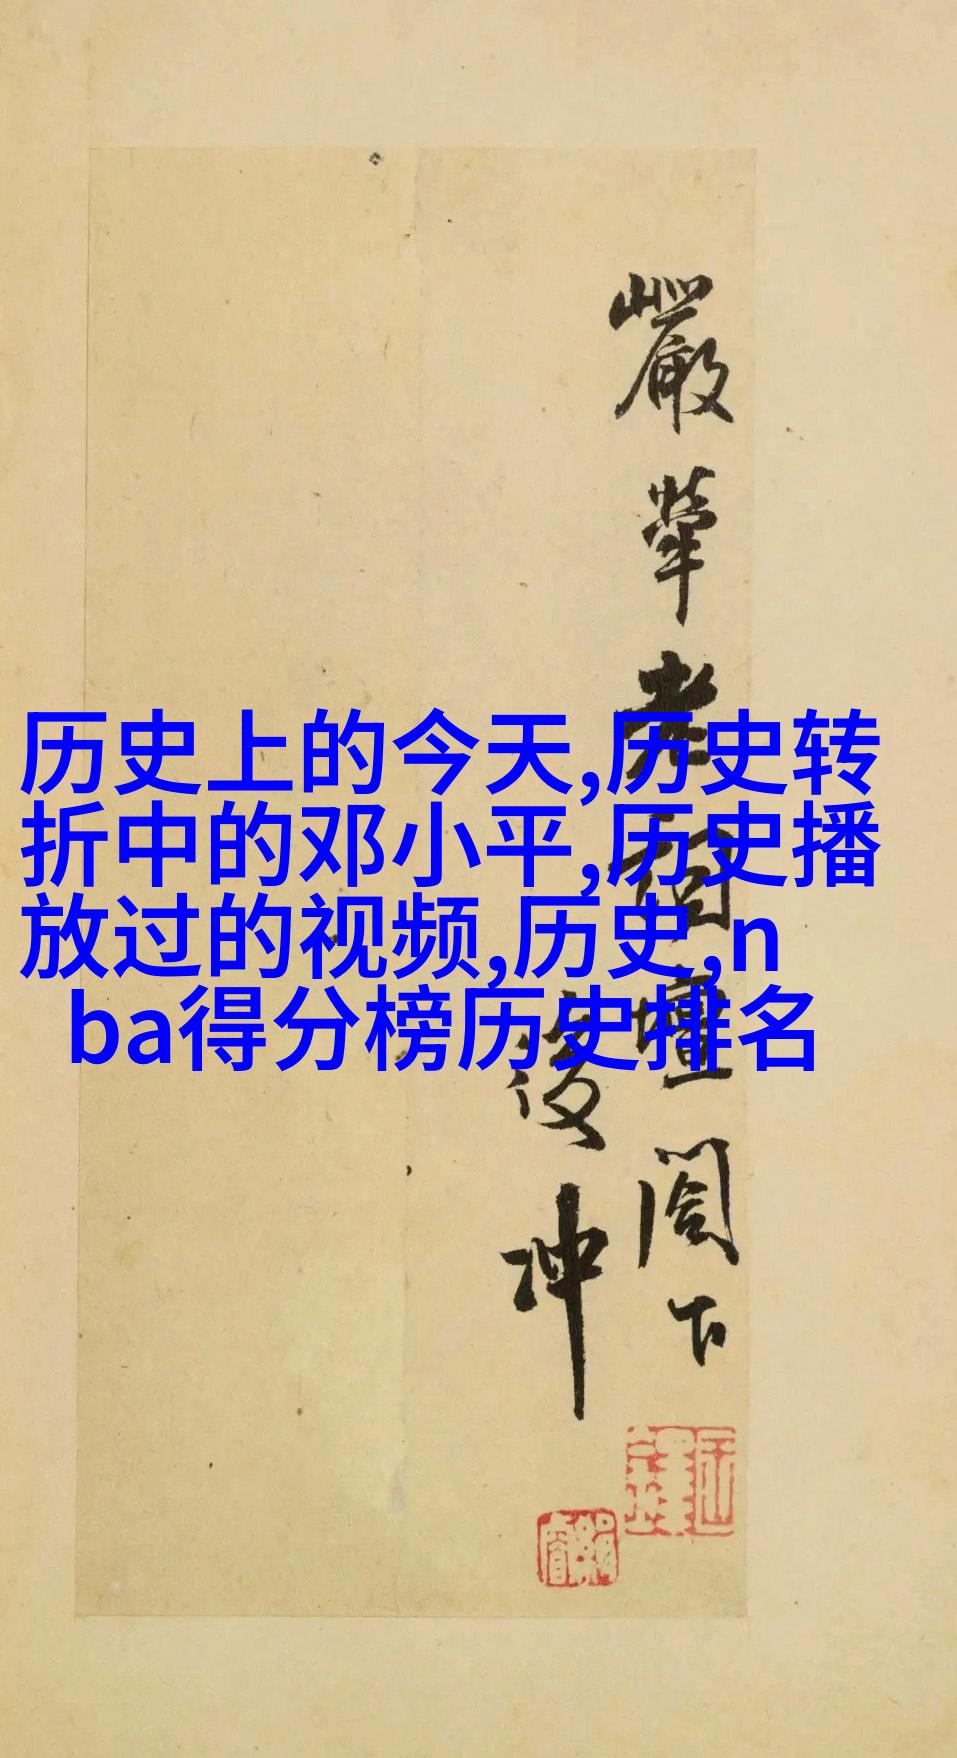 历史上的今天,历史转
折中的邓小平,历史播
放过的视频,历史,n
ba得分榜历史排名
嚴犖老宿壇閣下
復冲